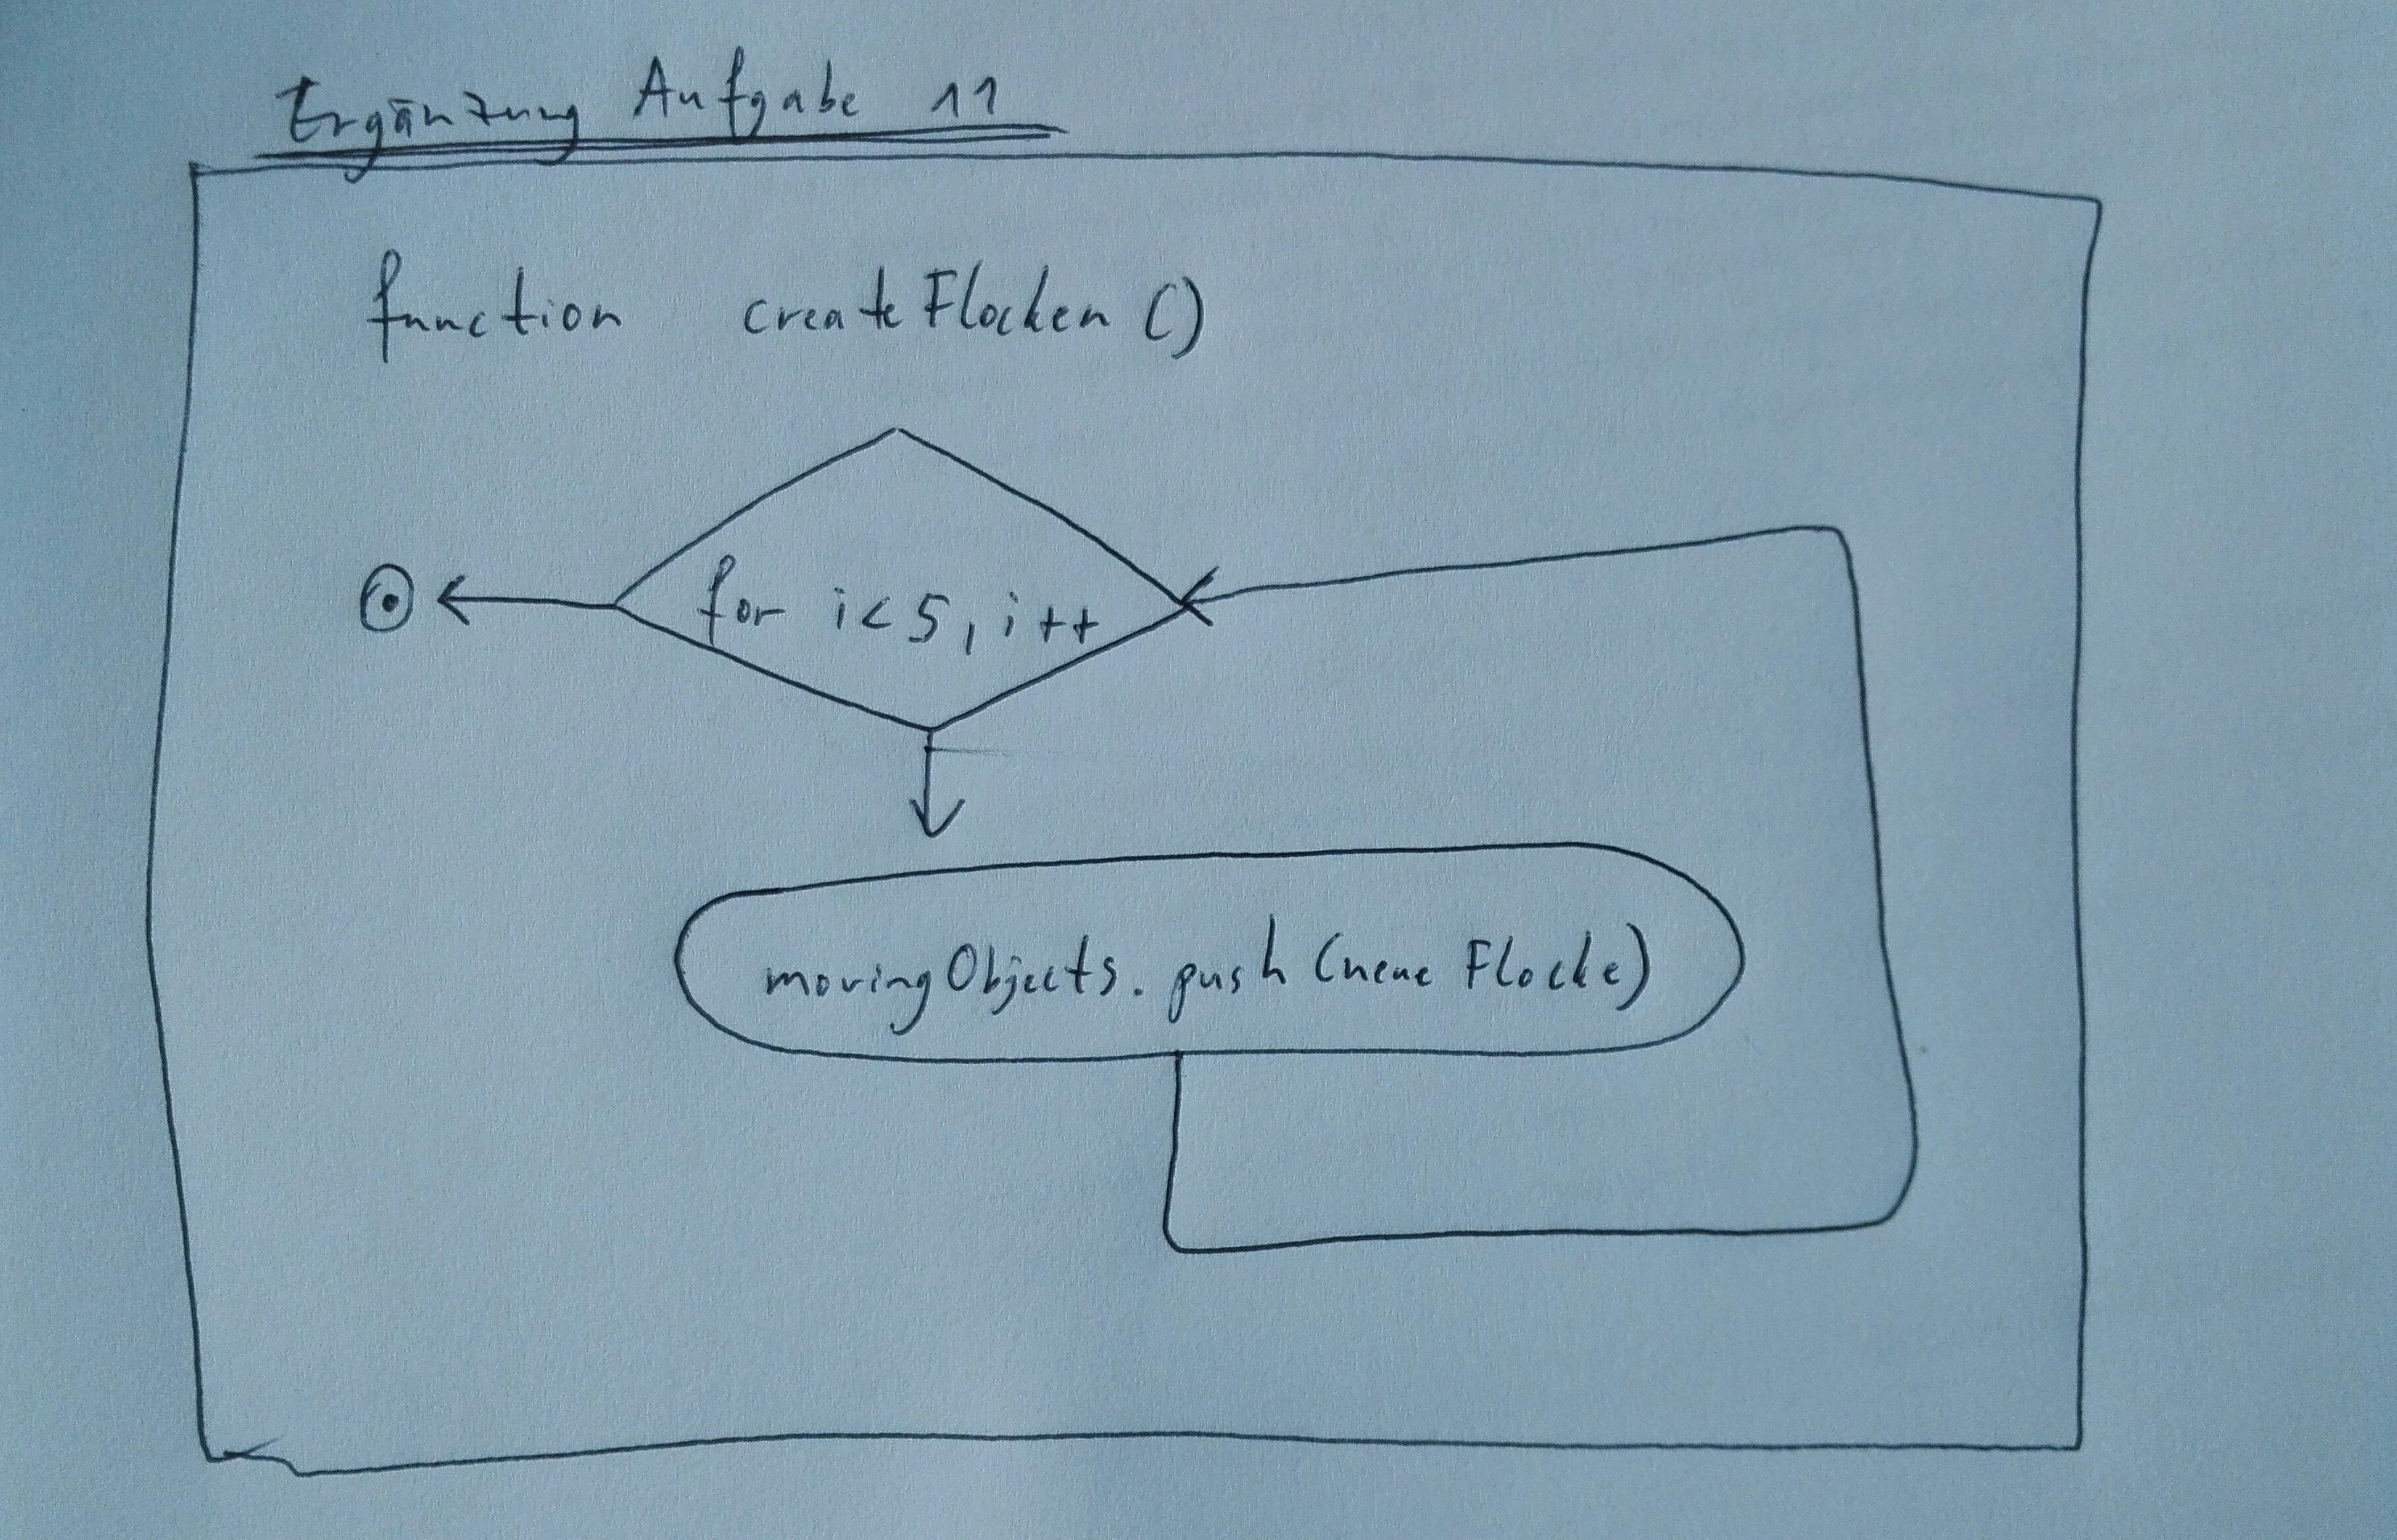 Ergänzung Aufgabe 11
function createFlocken ()
for i<5, i++
movingObjects.push (neue Flocke)